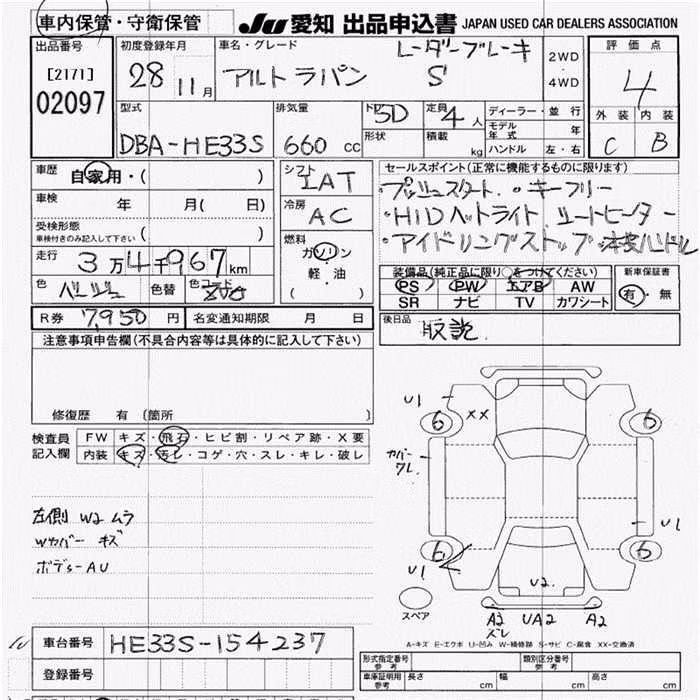 車内保管・守衛保管
JU 愛知 出品申込書 JAPAN USED CAR DEALERS ASSOCIATION
出品番号
[2171]
02097
初度登録年月
28 11月
車名・グレード
レーダーブレーキ
アルトラパン S
2WD
・
4WD
評価点
4
外装 内装
C B
型式
DBA-HE33S
排気量
660 cc
ドア
5D
形状
定員 4人
積載 kg
ディーラー・並行
モデル年式 年
ハンドル 左・右
車歴
自家用・( )
車検
年 月( 日)
受検形態
車検付きのみ記入して下さい ( )
走行
3万4千967km
色 ベージュ 色替 色コード ZVG
シフト
IAT
冷房
AC
燃料
ガソリン
軽・油
( )
セールスポイント(正常に機能するものに限ります)
・プッシュスタート ・キーフリー
・HIDヘットライト シートヒーター
・アイドリングストップ 本革ハンドル
装備品(純正品に限り○をつけてください)
PS PW エアB AW
SR ナビ TV カワシート
新車保証書
有・無
R券 7,950 円 名変通知期限 月 日
後日品
取説
注意事項申告欄(不具合内容等は具体的に記入して下さい)
修復歴 有 (箇所 )
検査員記入欄
FW キズ・飛石・ヒビ割・リペア跡・X要
内装 キズ・汚レ・コゲ・穴・スレ・キレ・破レ
左側 W2 ムラ
Wカバー キズ
ボデs-AU
U1
XX
6
6
カバー
ワレ
U1
6
6
U1
U2
スペア
A2
ズレ
UA2
A2
A-キズ E-エクボ U-凹み W-補修跡 S-サビ C-腐食 XX-交換済
車台番号 HE33S-154237
登録番号
形式指定番号
参考
類別区分番号
参考
車庫証明用
参考
長さ cm 幅 cm 高さ cm